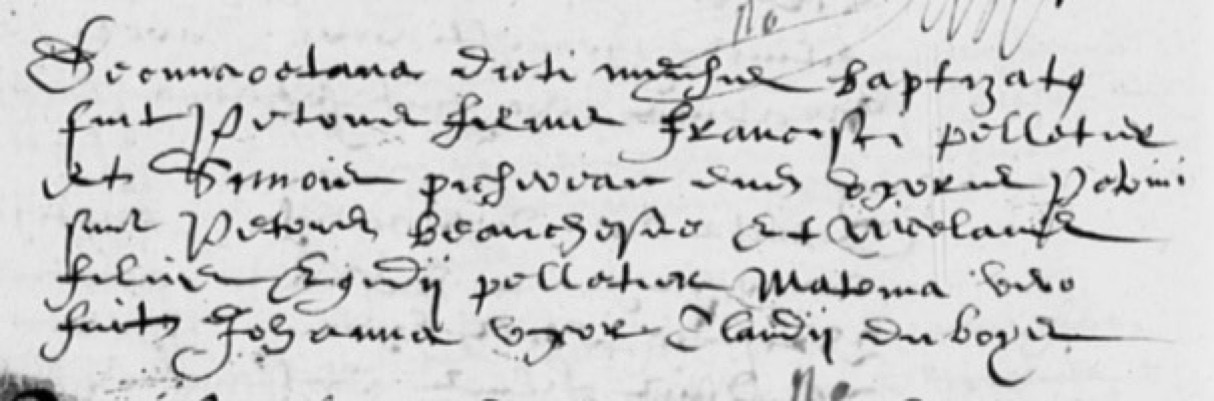 Decimaoctava dicti mensis baptizatus
fuit Petrus filius Francisci pelletier
et Simone eius uxoris Patrini
sunt Petrus beauchesne Et Nicolaus
filius Egidij pelletier Matrina vero
fuit Johanna uxor Claudij duboys